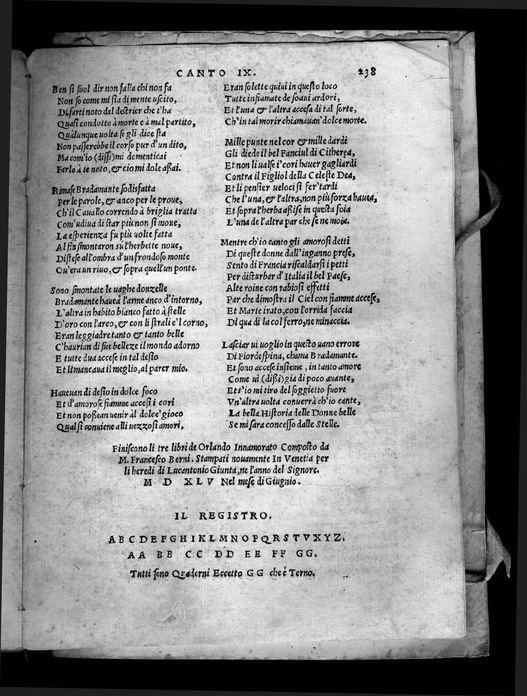 CANTO IX. 238
Ben si suol dir non falla chi non fa
Non so come mi sia di mente uscito,
Di farti noto del destrier che t'ha
Quasi condotto à morte e à mal partito,
Qualunque volta se gli dice sta
Non passerebbe il corso pur d'un dito,
Ma com'io (dissi) mi dementicai
Farlo à te noto, & ciò mi dole assai.
Rimase Bradamante sodisfatta
Per le parole, & anco per le proue,
Ch'il Cauallo correndo à briglia tratta
Com'udiua di star più non si moue,
La esperienza fu più volte fatta
Al fin smontaron su l'herbette noue,
Distese all'ombra d'un frondoso monte
Qu'era un riuo, & sopra quell'un ponte.
Sono smontate le uaghe donzelle
Bradamante hauea l'arme anco d'intorno,
L'altra in habito bianco fatto à stelle
D'oro con l'arco, & con li strali e'l corno,
Eran leggiadre tanto & tanto belle
C'haurian di sue belleze il mondo adorno
E tutte due accese in tal desio
Et li mancaua il meglio, al parer mio.
Haueuan di desio in dolce foco
Et d'amorose fiamme accesi i cori
Et non poßean venir al dolce gioco
Qual si conuiene alli vezzosi amori,
Eran solette quiui in questo loco
Tutte infiamate de soaui ardori,
Et l'una & l'altra accesa di tal sorte,
Ch'in tal morir chiamauan dolce morte.
Mille punte nel cor & mille dardi
Gli diede il bel Fanciul di Citherea,
Et non li ualse i cori hauer gagliardi
Contra il Figliol della Celeste Dea,
Et li pensier veloci si fer tardi
Che l'una, & l'altra, non più forza hauea,
Et sopra l'herba assise in questa foia
L'una de l'altra par che se ne moia.
Mentre ch'io canto gli amorosi detti
Di queste donne dall'inganno prese,
Sento di Francia riscaldarsi i petti
Per disturbar d'Italia il bel Paese,
Alte roine con rabiosi effetti
Par che dimostra il Ciel con fiamme accese,
Et Marte irato, con l'orrida faccia
Di qua di la col ferro, ne minaccia.
Lasciar ui uoglio in questo uano errore
Di Fiordespina, chama Bradamante.
Et sono accese insieme, in tanto amore
Come ui (dissi) gia di poco auante,
Et s'io mi tiro del soggietto fuore
Vn'altra uolta conuerrà ch'io cante,
La bella Historia delle Donne belle
Se mi sara concesso dalle Stelle.
Finiscono li tre libri de Orlando Innamorato Composto da
M. Francesco Berni. Stampati nouamente In Venetia per
li heredi di Lucantonio Giunta, ne l'anno del Signore.
M D XLV Nel mese di Giugnio.
IL REGISTRO.
A B C D E F G H I K L M N O P Q R S T V X Y Z.
AA BB CC DD EE FF GG.
Tutti sono Quaderni Eccetto GG che è Terno.